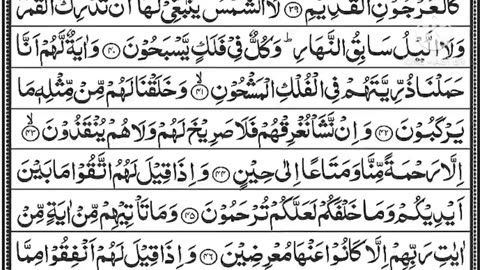 كَالْعُرْجُوْنِ الْقَدِيْمِ ۝۳۹ لَا الشَّمْسُ يَنْۢبَغِيْ لَهَاۤ اَنْ تُدْرِكَ الْقَمَرَ
وَلَا الَّيْلُ سَابِقُ النَّهَارِ ؕ وَكُلٌّ فِيْ فَلَكٍ يَّسْبَحُوْنَ ۝۴۰ وَاٰيَةٌ لَّهُمْ اَنَّا
حَمَلْنَا ذُرِّيَّتَهُمْ فِي الْفُلْكِ الْمَشْحُوْنِ ۝۴۱ۙ وَخَلَقْنَا لَهُمْ مِّنْ مِّثْلِهٖ مَا
يَرْكَبُوْنَ ۝۴۲ وَاِنْ نَّشَاْ نُغْرِقْهُمْ فَلَا صَرِيْخَ لَهُمْ وَلَا هُمْ يُنْقَذُوْنَ ۝۴۳ۙ
اِلَّا رَحْمَةً مِّنَّا وَمَتَاعًا اِلٰى حِيْنٍ ۝۴۴ وَاِذَا قِيْلَ لَهُمُ اتَّقُوْا مَا بَيْنَ
اَيْدِيْكُمْ وَمَا خَلْفَكُمْ لَعَلَّكُمْ تُرْحَمُوْنَ ۝۴۵ وَمَا تَاْتِيْهِمْ مِّنْ اٰيَةٍ مِّنْ
اٰيٰتِ رَبِّهِمْ اِلَّا كَانُوْا عَنْهَا مُعْرِضِيْنَ ۝۴۶ وَاِذَا قِيْلَ لَهُمْ اَنْفِقُوْا مِمَّا